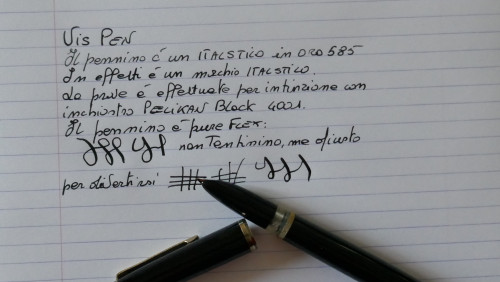 Vis PEN
Il pennino è un ITALSTICO in ORO 585
In effetti è un mechio ITALSTICO.
La prove è effettuate per intinzione con
inchiostro PELIKAN Black 4001.
Il pennino è pure FLEX:
non Tantinino, me giusto
per divertirsi